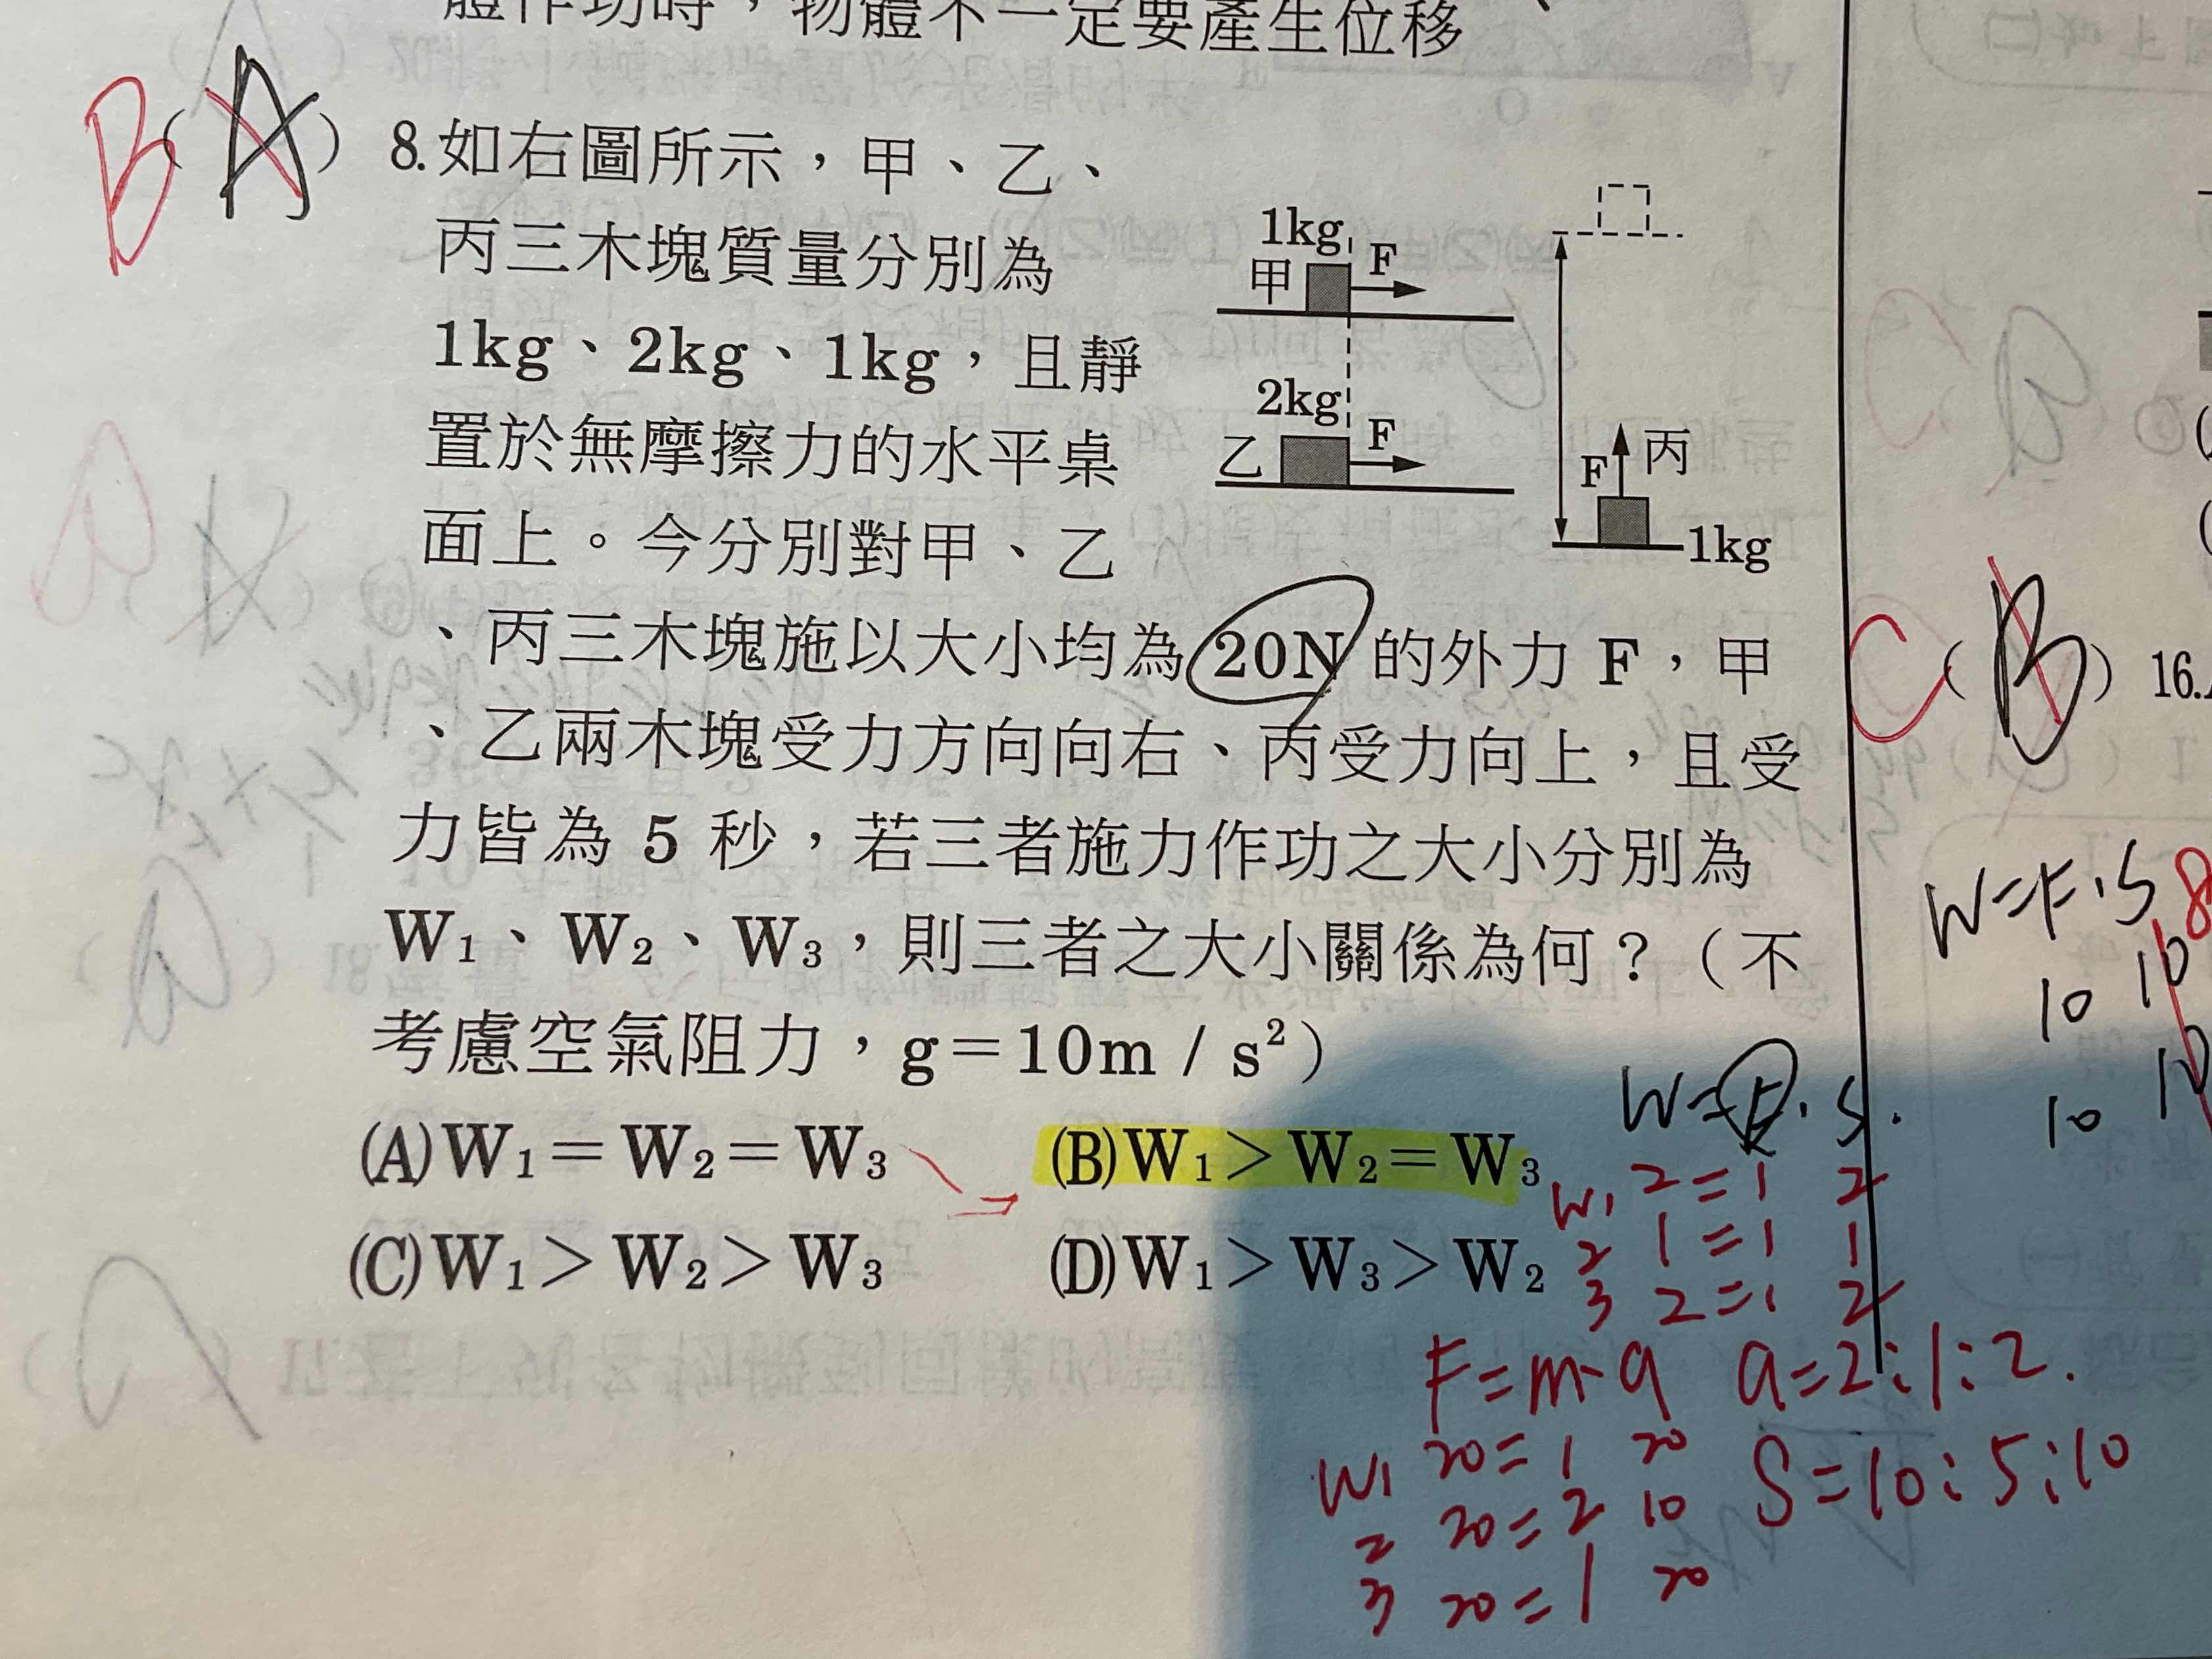 體作功時，物體不一定要產生位移
B( A ) 8.如右圖所示，甲、乙、
丙三木塊質量分別為
1kg、2kg、1kg，且靜
置於無摩擦力的水平桌
面上。今分別對甲、乙
、丙三木塊施以大小均為20N的外力 F，甲
、乙兩木塊受力方向向右、丙受力向上，且受
力皆為 5 秒，若三者施力作功之大小分別為
W1、W2、W3，則三者之大小關係為何？（不
考慮空氣阻力，g＝10m / s²）
(A)W1＝W2＝W3
(B)W1＞W2＝W3
(C)W1＞W2＞W3
(D)W1＞W3＞W2
1kg
甲
F
2kg
乙
F
F
丙
1kg
C( B ) 16.
W=F.S
10 10
10 10
8
W=F.S.
W1 2=1 2
2 1=1 1
3 2=1 2
F=m·a a=2:1:2.
W1 20=1 20
S=10:5:10
2 20=2 10
3 20=1 20